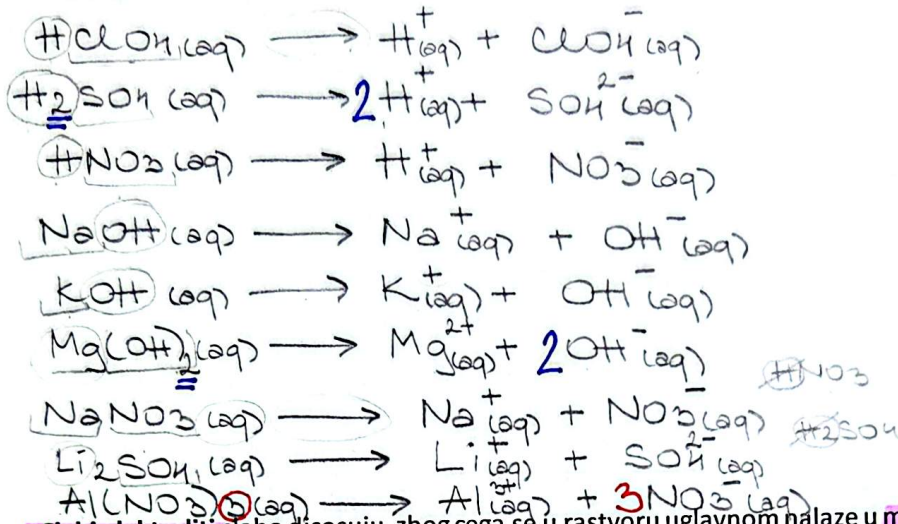 HClO4(aq) ⟶ H⁺(aq) + ClO4⁻(aq)
H2SO4(aq) ⟶ 2H⁺(aq) + SO4²⁻(aq)
HNO3(aq) ⟶ H⁺(aq) + NO3⁻(aq)
NaOH(aq) ⟶ Na⁺(aq) + OH⁻(aq)
KOH(aq) ⟶ K⁺(aq) + OH⁻(aq)
Mg(OH)2(aq) ⟶ Mg²⁺(aq) + 2OH⁻(aq)
HNO3
NaNO3(aq) ⟶ Na⁺(aq) + NO3⁻(aq)
H2SO4
Li2SO4(aq) ⟶ Li⁺(aq) + SO4²⁻(aq)
Al(NO3)3(aq) ⟶ Al³⁺(aq) + 3NO3⁻(aq)
zbog čega se u rastvoru uglavnom nalaze u